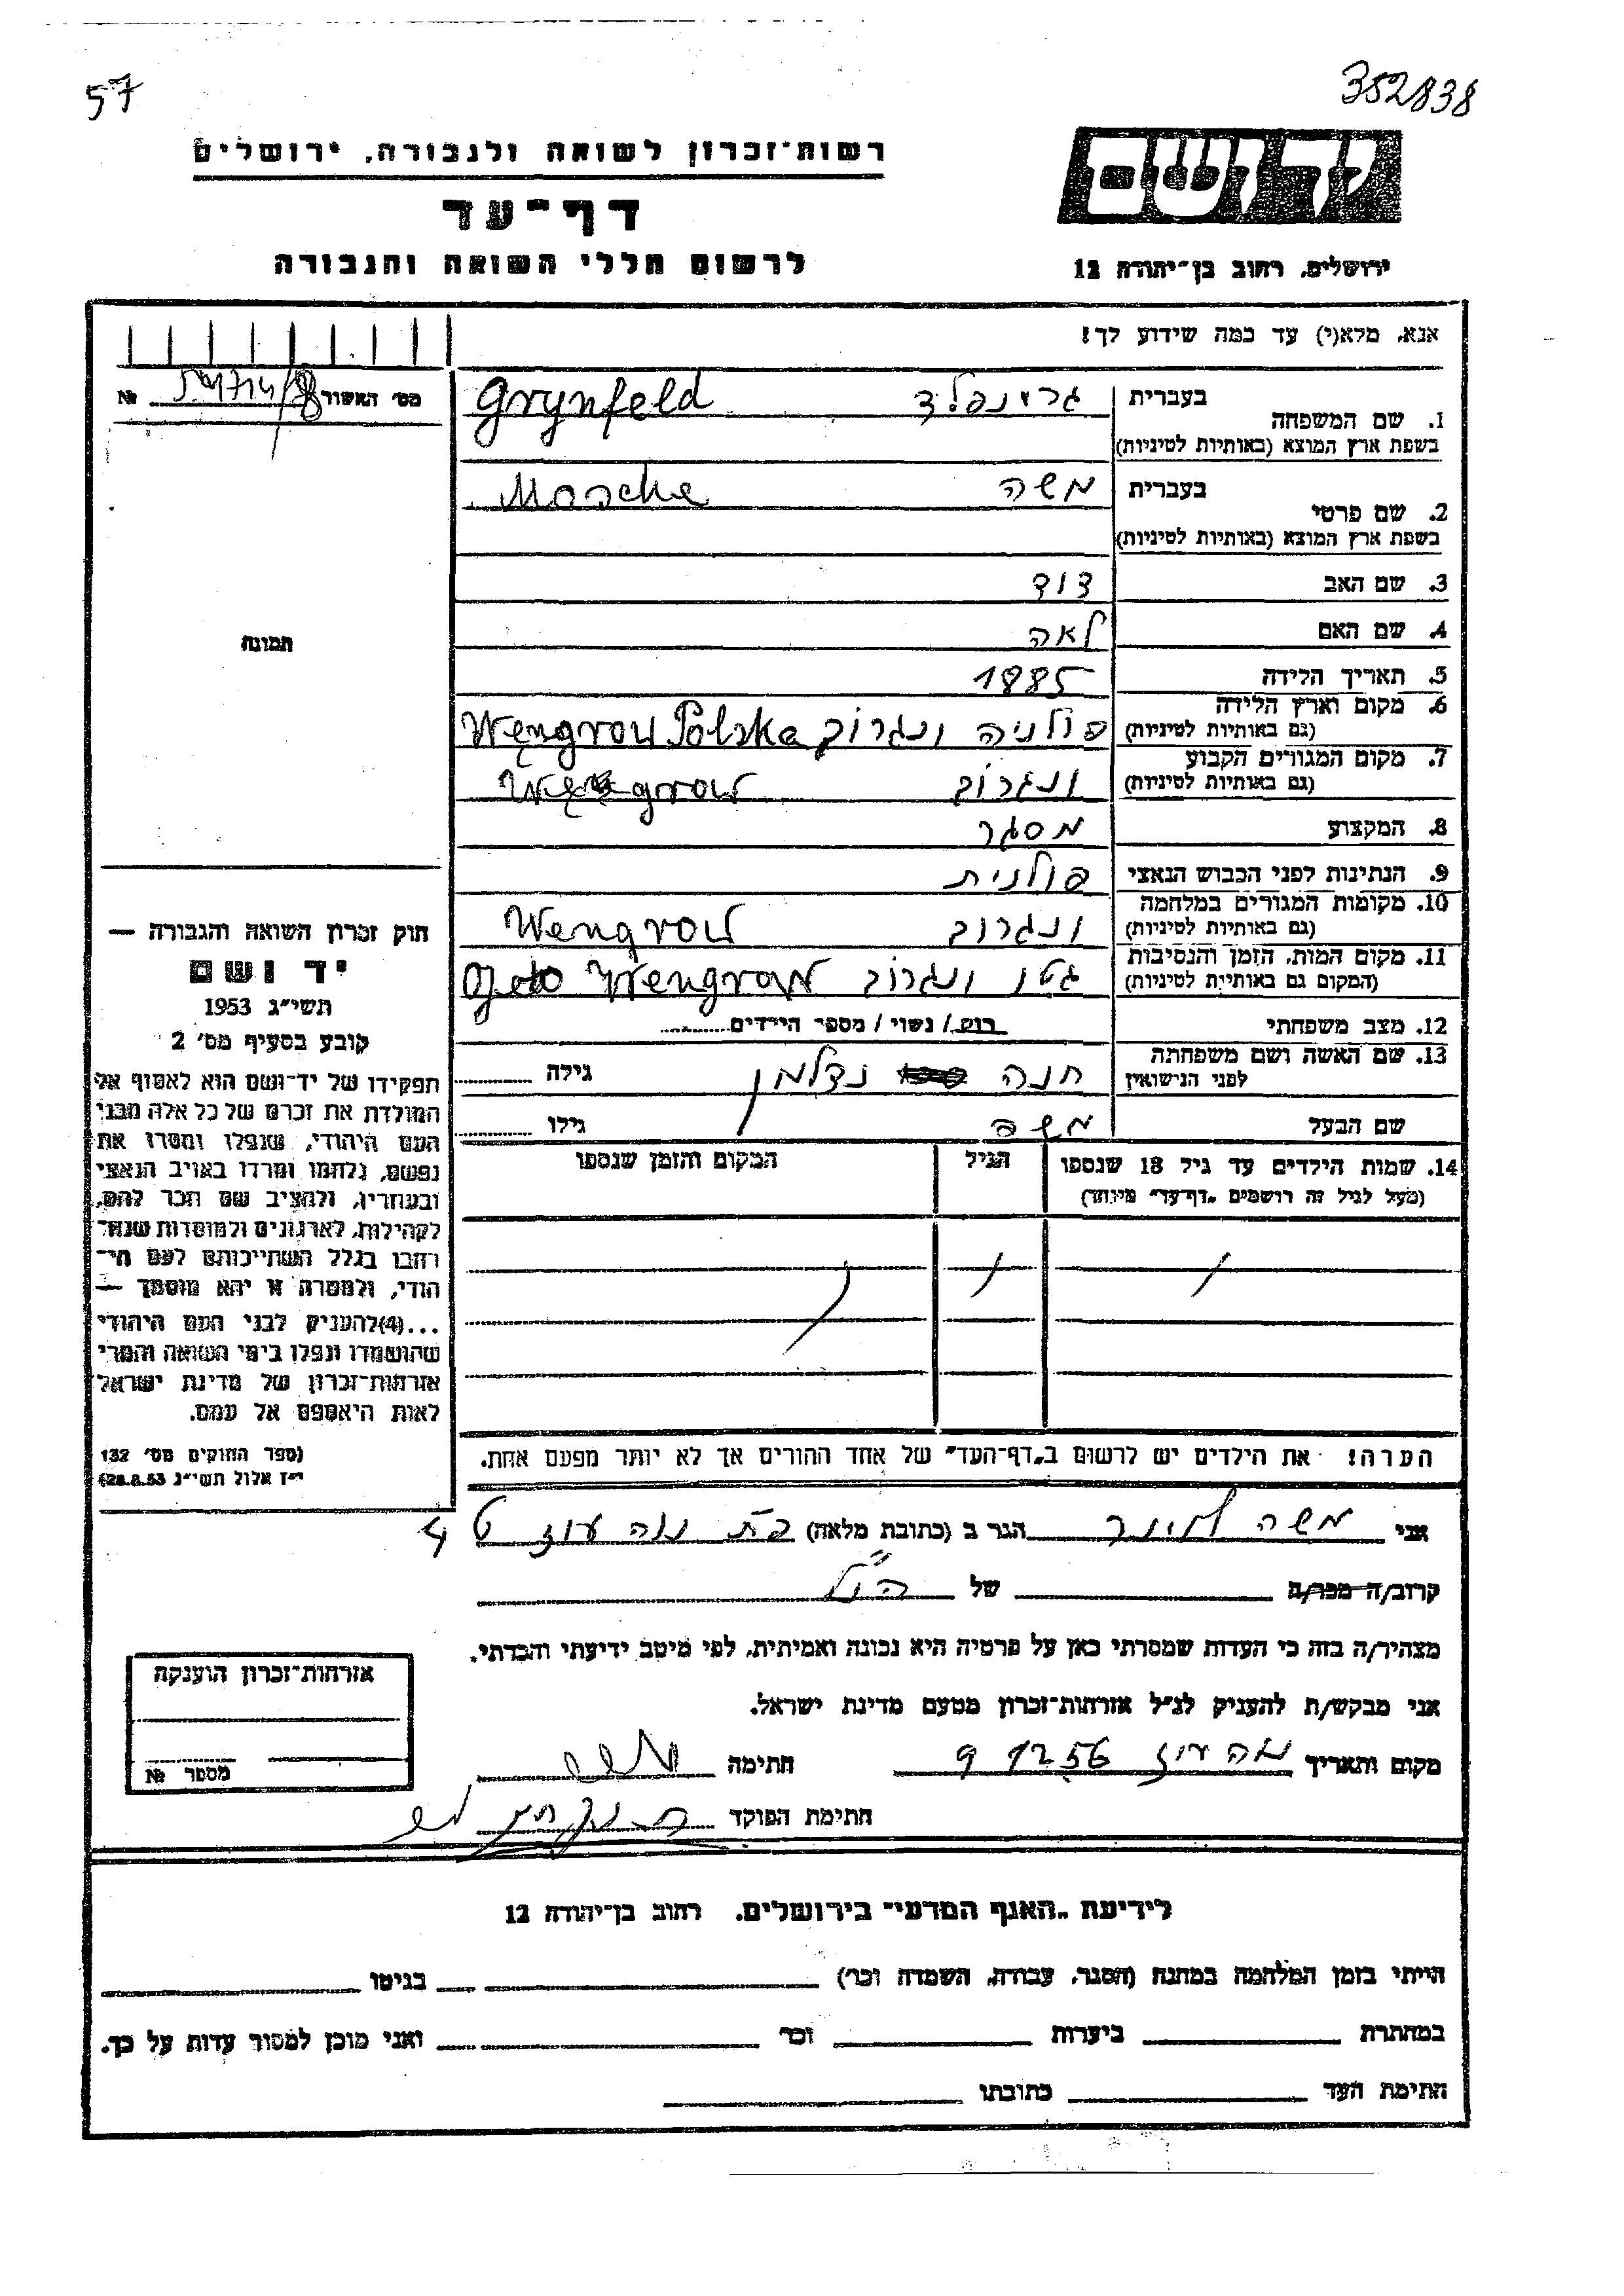 57
352838
רשות־זכרון לשואה ולגבורה, ירושלים
ידושם
דף־עד
לרשום חללי השואה והגבורה
ירושלים, רחוב בן־יהודה 12
אנא, מלא(י) עד כמה שידוע לך!
מס׳ האשור №
1. שם המשפחה
בעברית גרינפלד Grynfeld
בשפת ארץ המוצא (באותיות לטיניות)
2. שם פרטי
בעברית משה Mosche
בשפת ארץ המוצא (באותיות לטיניות)
3. שם האב דוד
4. שם האם לאה
תמונה
5. תאריך הלידה 1885
6. מקום וארץ הלידה
(גם באותיות לטיניות) פולניה ונגרוב Wengrow Polska
7. מקום המגורים הקבוע
(גם באותיות לטיניות) ונגרוב Wengrow
8. המקצוע מסגר
9. הנתינות לפני הכבוש הנאצי פולנית
10. מקומות המגורים במלחמה
(גם באותיות לטיניות) ונגרוב Wengrow
11. מקום המות, הזמן והנסיבות
(המקום גם באותיות לטיניות) גטו ונגרוב Geto Wengrow
12. מצב משפחתי רווק / נשוי / מספר הילדים
13. שם האשה ושם משפחתה
לפני הנישואין חנה נדלמן גילה
שם הבעל משה גילו
14. שמות הילדים עד גיל 18 שנספו הגיל המקום והזמן שנספו
(מעל לגיל זה רושמים „דף־עד״ מיוחד)
הערה! את הילדים יש לרשום ב„דף־העד״ של אחד ההורים אך לא יותר מפעם אחת.
חוק זכרון השואה והגבורה —
יד ושם
תשי״ג 1953
קובע בסעיף מס׳ 2
תפקידו של יד־ושם הוא לאסוף אל
המולדת את זכרם של כל אלה מבני
העם היהודי, שנפלו ומסרו את
נפשם, נלחמו ומרדו באויב הנאצי
ובעוזריו, ולהציב שם וזכר להם,
לקהילות, לארגונים ולמוסדות שנח־
רבו בגלל השתייכותם לעם הי־
הודי, ולמטרה זו יהא מוסמך —
...(4)להעניק לבני העם היהודי
שהושמדו ונפלו בימי השואה והמרי
אזרחות־זכרון של מדינת ישראל
לאות היאספם אל עמם.
(ספר החוקים מס׳ 132
י״ז אלול תשי״ג 28.8.53)
אני משה הגר ב (כתובת מלאה) נוה עוז
קרוב/ה מכר/ה של הנ״ל
מצהיר/ה בזה כי העדות שמסרתי כאן על פרטיה היא נכונה ואמיתית, לפי מיטב ידיעתי והכרתי.
אני מבקש/ת להעניק לנ״ל אזרחות־זכרון מטעם מדינת ישראל.
מקום ותאריך נוה עוז 9 12 56 חתימה
חתימת הפוקד
אזרחות־זכרון הוענקה
מספר №
לידיעת „האגף המדעי״ בירושלים, רחוב בן־יהודה 12
הייתי בזמן המלחמה במחנה (הסגר, עבודה, השמדה וכו׳) בגיטו
במחתרת ביערות וכו׳ ואני מוכן למסור עדות על כך.
חתימת העד כתובתו